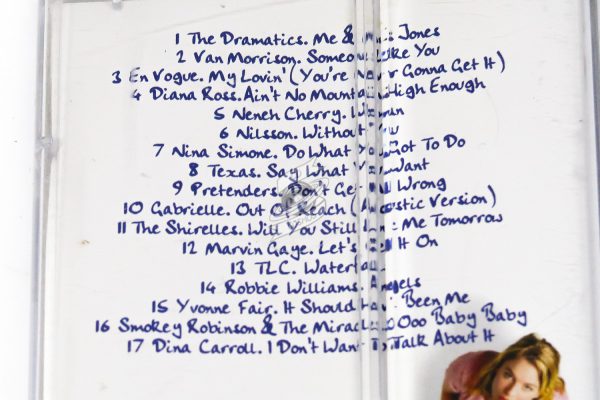 1 The Dramatics. Me & Mrs Jones
2 Van Morrison. Someone Like You
3 En Vogue. My Lovin' (You're Never Gonna Get It)
4 Diana Ross. Ain't No Mountain High Enough
5 Neneh Cherry. Woman
6 Nilsson. Without You
7 Nina Simone. Do What You Got To Do
8 Texas. Say What You Want
9 Pretenders. Don't Get Me Wrong
10 Gabrielle. Out Of Reach (Acoustic Version)
11 The Shirelles. Will You Still Love Me Tomorrow
12 Marvin Gaye. Let's Get It On
13 TLC. Waterfalls
14 Robbie Williams. Angels
15 Yvonne Fair. It Should Have Been Me
16 Smokey Robinson & The Miracles Ooo Baby Baby
17 Dina Carroll. I Don't Want To Talk About It